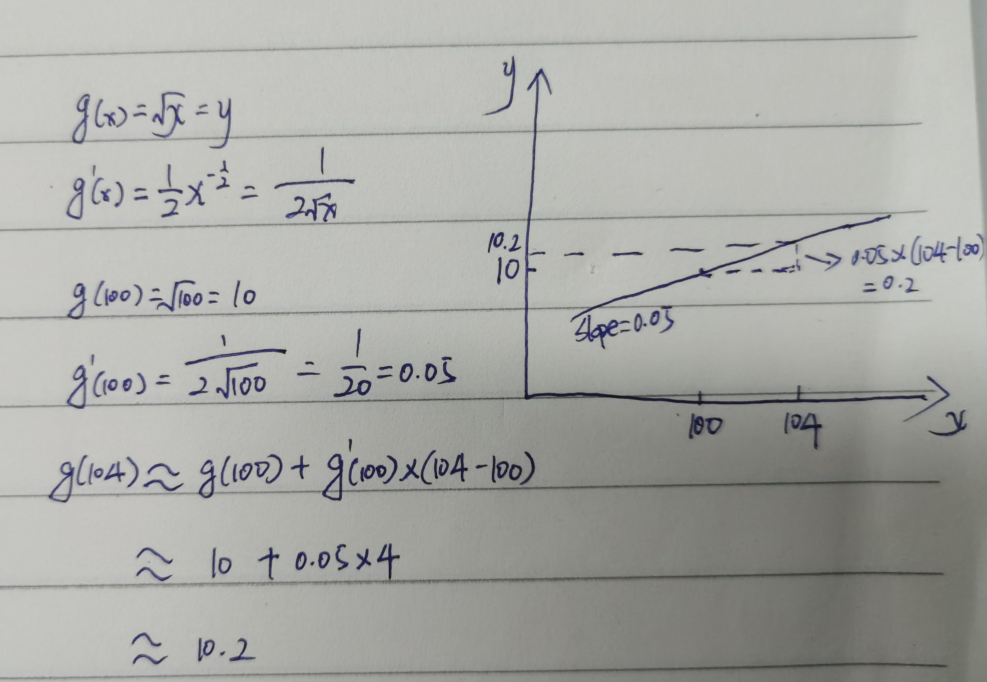 g(x)=√x=y
g'(x)=1/2 x^(-1/2)=1/(2√x)
g(100)=√100=10
g'(100)=1/(2√100)=1/20=0.05
g(104)≈g(100)+g'(100)×(104-100)
≈ 10 + 0.05×4
≈ 10.2
y
10.2
10
0.05×(104-100)
=0.2
slope=0.05
100
104
x